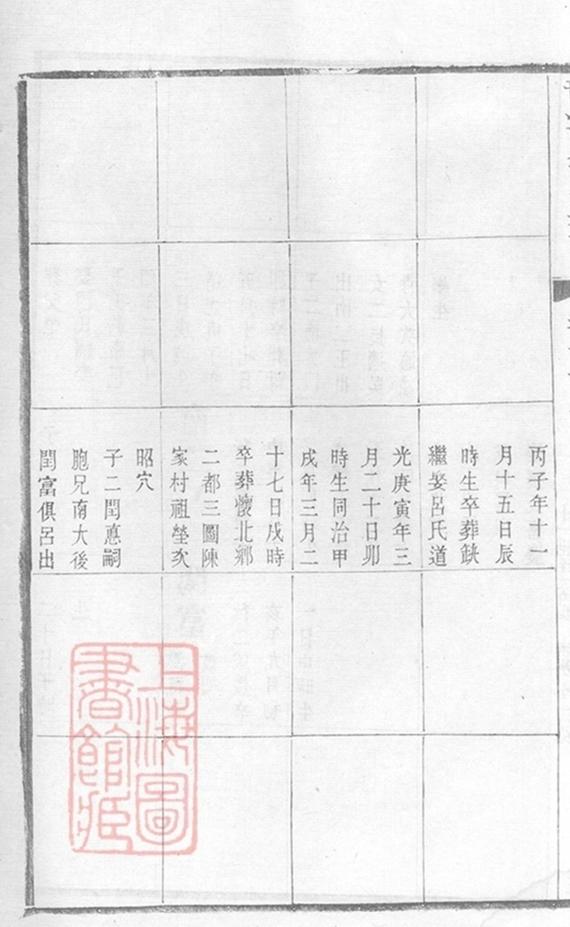 丙子年十一
月十五日辰
時生卒葬缺
繼娶呂氏道
光庚寅年三
月二十日卯
時生同治甲
戌年三月二
十七日戌時
卒葬懷北鄉
二都三圖陳
家村祖塋次
昭穴
子二閏惪嗣
胞兄南大後
閏富俱呂出
上海圖
書館藏